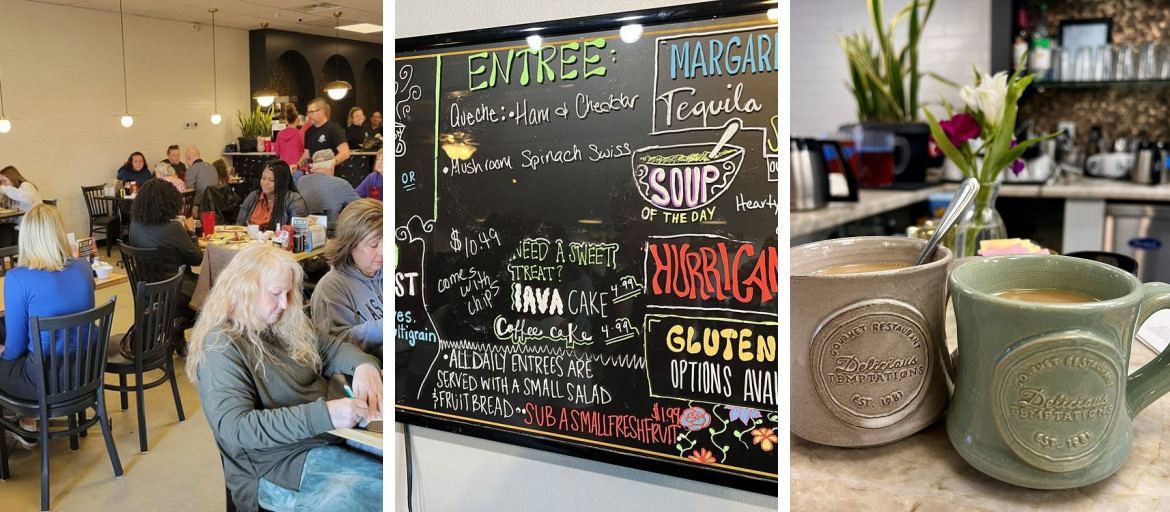 ENTREE:
Queche: • Ham & Cheddar
• Mushroom Spinach Swiss
$10.49
comes with chips
NEED A SWEET
TREAT?
JAVA CAKE 4.99
Coffee cake 4.99
• ALL DAILY ENTREES ARE
SERVED WITH A SMALL SALAD
& FRUIT BREAD • SUB A SMALL FRESH FRUIT $1.99
OR
ST
res.
ltigrain
MARGAR
Tequila
SOUP
OF THE DAY
Hearty
HURRICAN
GLUTEN
OPTIONS AVAI
GOURMET RESTAURANT
Delicious
TEMPTATIONS
EST. 1981
GOURMET RESTAURANT
Delicious
TEMPTATIONS
EST. 1981